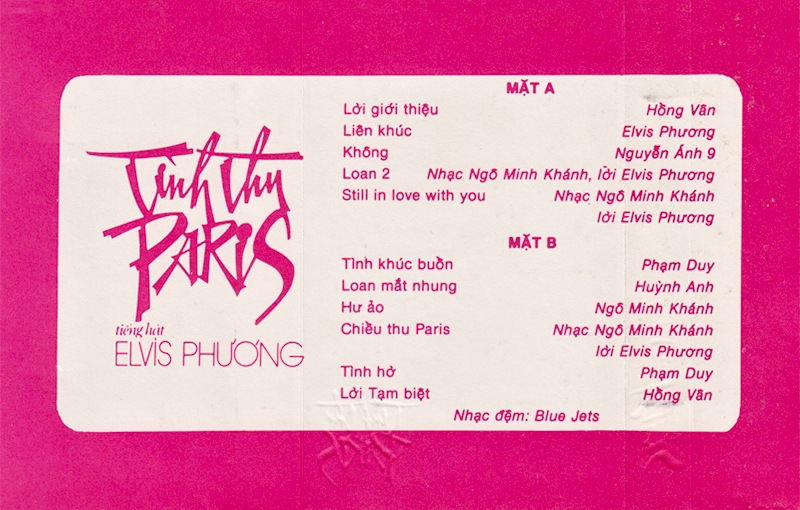 Tình Thu
PARIS
tiếng hát
ELVIS PHƯƠNG
MẶT A
Lời giới thiệu Hồng Vân
Liên khúc Elvis Phương
Không Nguyễn Ánh 9
Loan 2 Nhạc Ngô Minh Khánh, lời Elvis Phương
Still in love with you Nhạc Ngô Minh Khánh
lời Elvis Phương
MẶT B
Tình khúc buồn Phạm Duy
Loan mắt nhung Huỳnh Anh
Hư ảo Ngô Minh Khánh
Chiều thu Paris Nhạc Ngô Minh Khánh
lời Elvis Phương
Tình hờ Phạm Duy
Lời Tạm biệt Hồng Vân
Nhạc đệm: Blue Jets